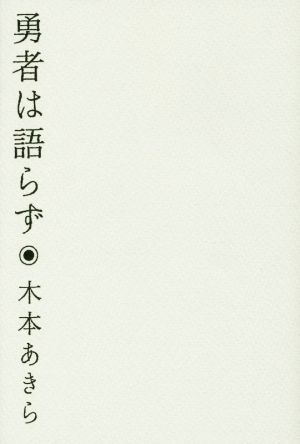 勇者は語らず◉木本あきら